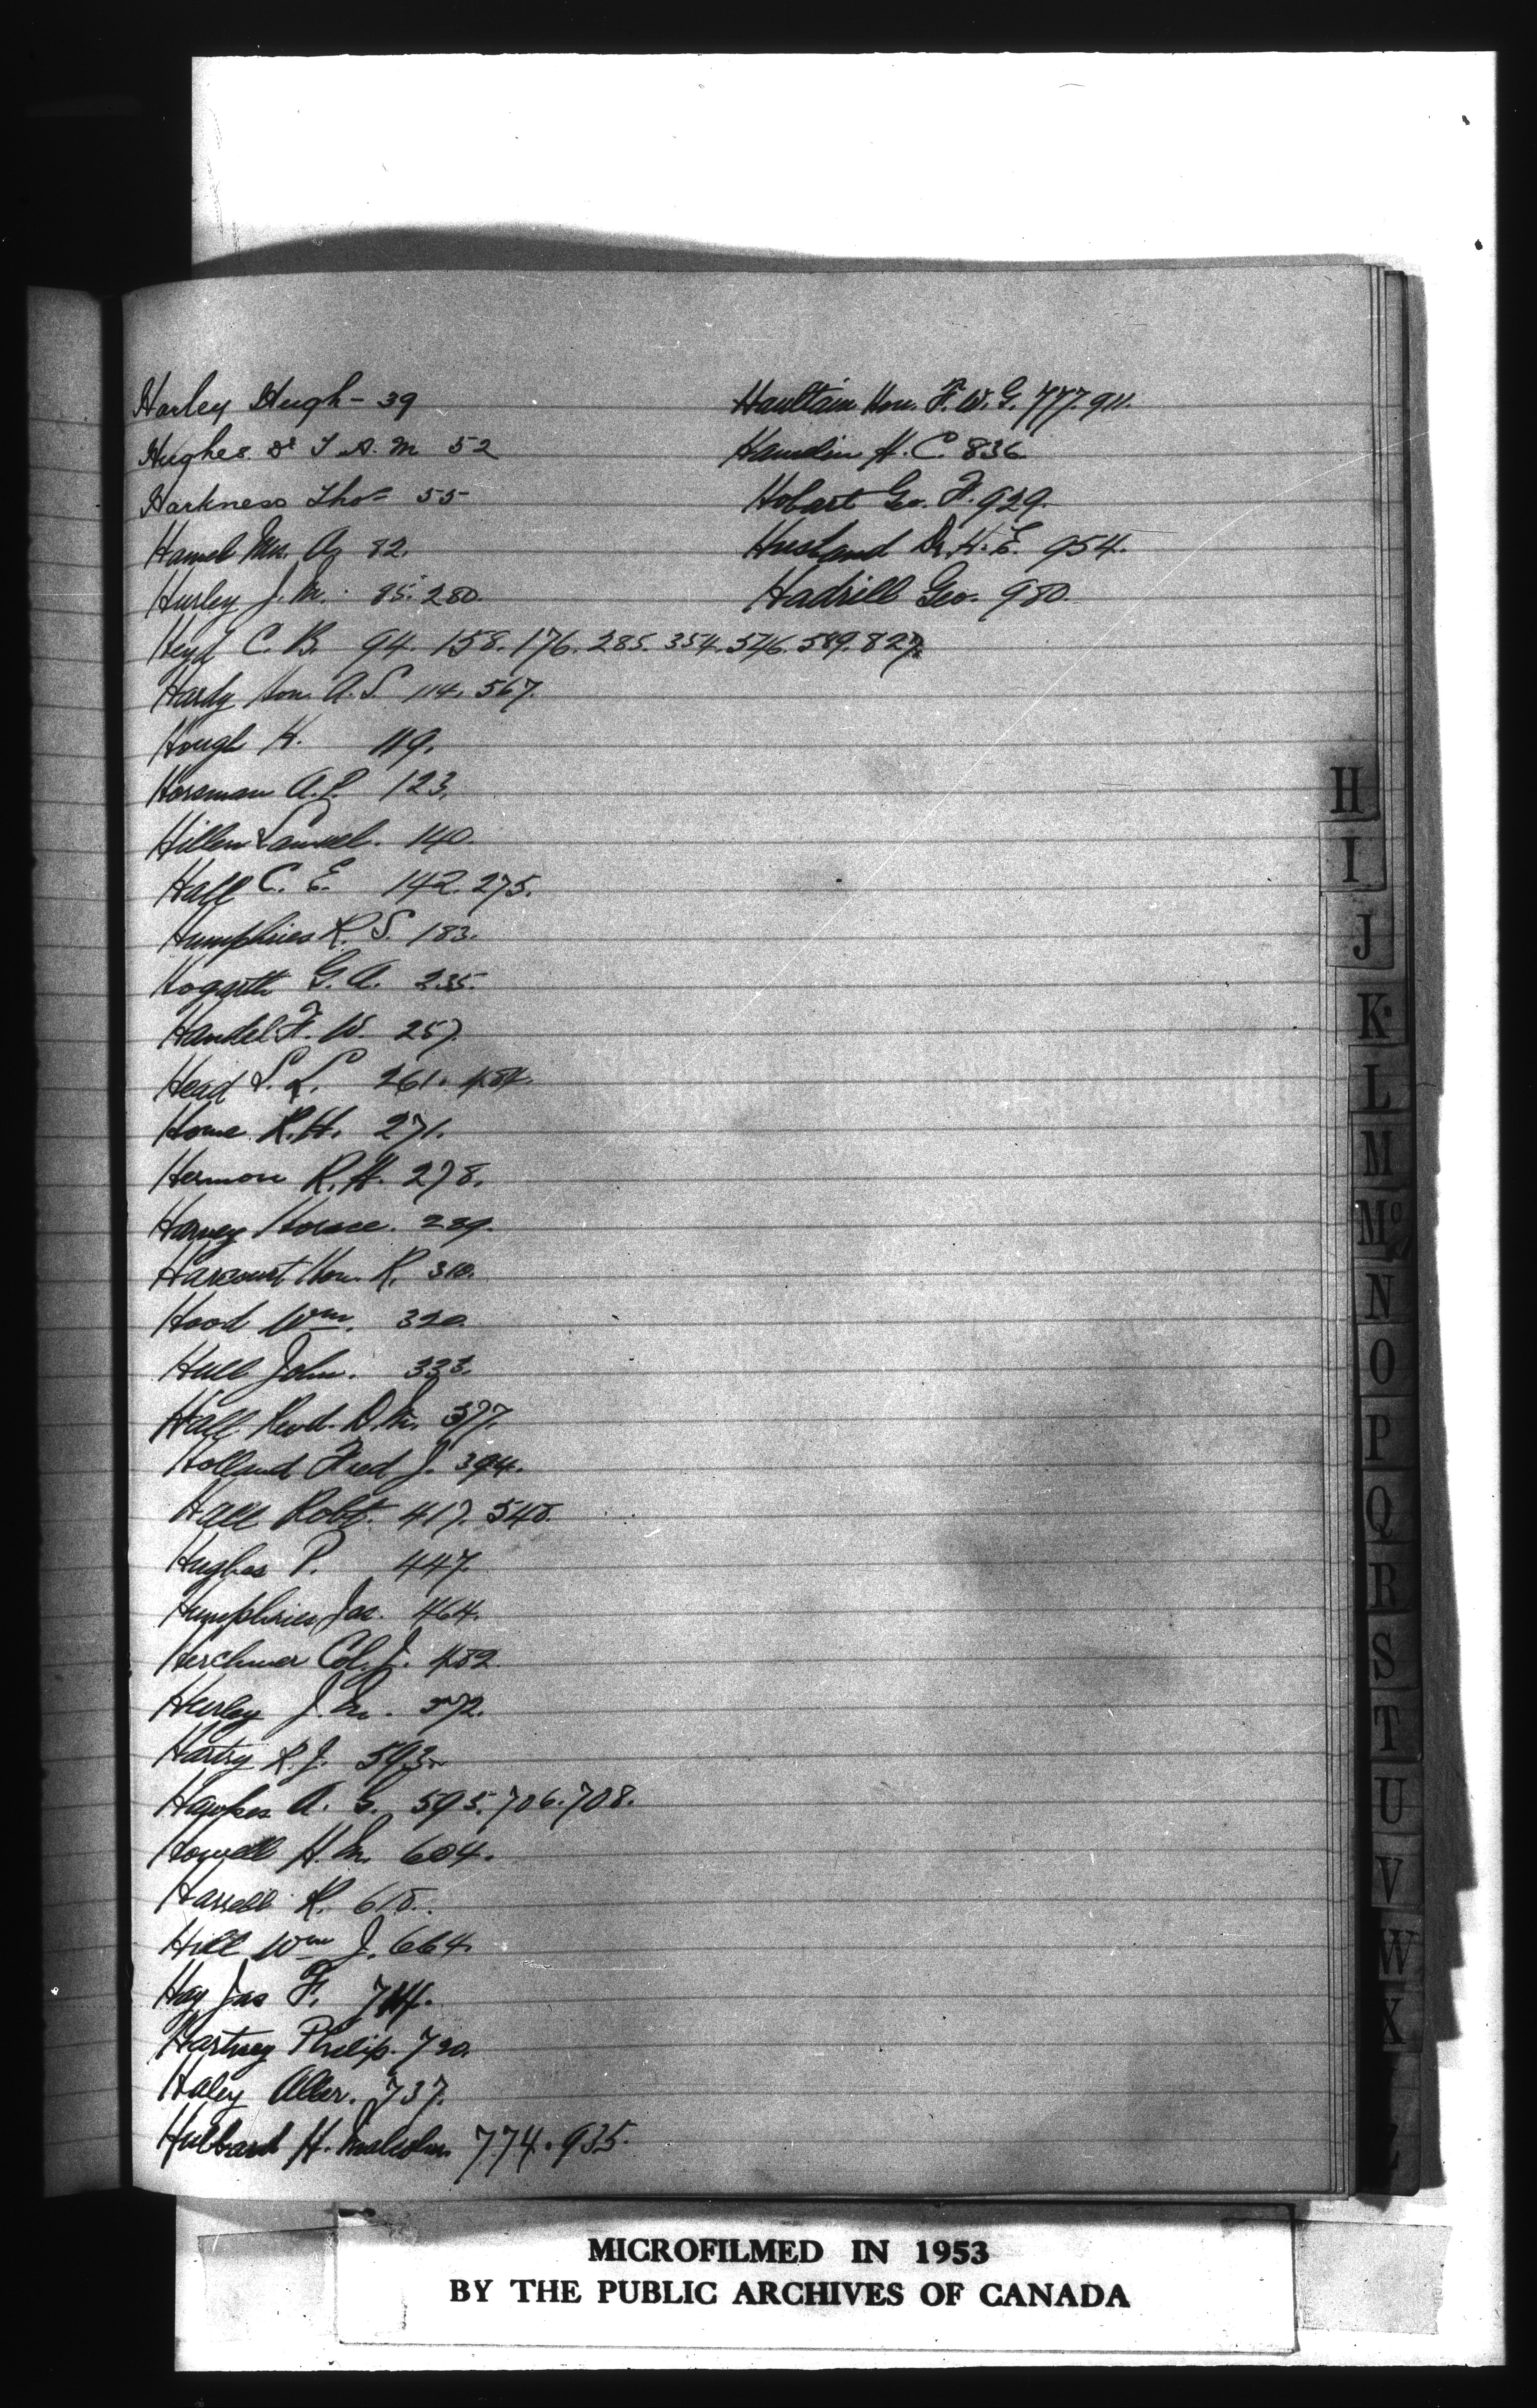 Harley Hugh - 39
Hughes Dr T. A. M. 52
Harkness Thos 55
Hamel Mrs. A. 82.
Hurley J. M. 85. 280.
Heyd C. B. 94. 158. 176. 285. 354. 546. 589. 827.
Hardy Hon. A. S. 114. 567.
Hough H. 119.
Horsman A. P. 123.
Hillen Samuel. 140.
Hall C. E. 142. 275.
Humphries R. S. 183.
Hogarth G. A. 235.
Handel F. W. 257.
Head S. L. 261. 484.
Home R. H. 271.
Hermon R. H. 278.
Harvey Horace. 289.
Harcourt Hon. R. 310.
Hood Wm. 320.
Hull John. 333.
Hall Revd. D. M. 377.
Holland Fred J. 394.
Hall Robt. 417. 548.
Hughes P. 447.
Humphries Jas. 464.
Herchmer Col. J. 482.
Hurley J. M. 572.
Hartry R. J. 593.
Hawkes A. S. 595. 706. 708.
Howell H. M. 604.
Harrell R. 618.
Hill Wm J. 664.
Hay Jas F. 714.
Hartney Philip. 720.
Haley Allen. 737.
Hubbard H. Malcolm 774. 935.
Haultain Hon. F. W. G. 777. 911.
Hamelin H. C. 836.
Hobart Geo. F. 929.
Husband Dr. H. E. 954.
Hadrill Geo. 980.
H
I
J
K
L
M
Mc
N
O
P
Q
R
S
T
U
V
W
X
Z
MICROFILMED IN 1953
BY THE PUBLIC ARCHIVES OF CANADA